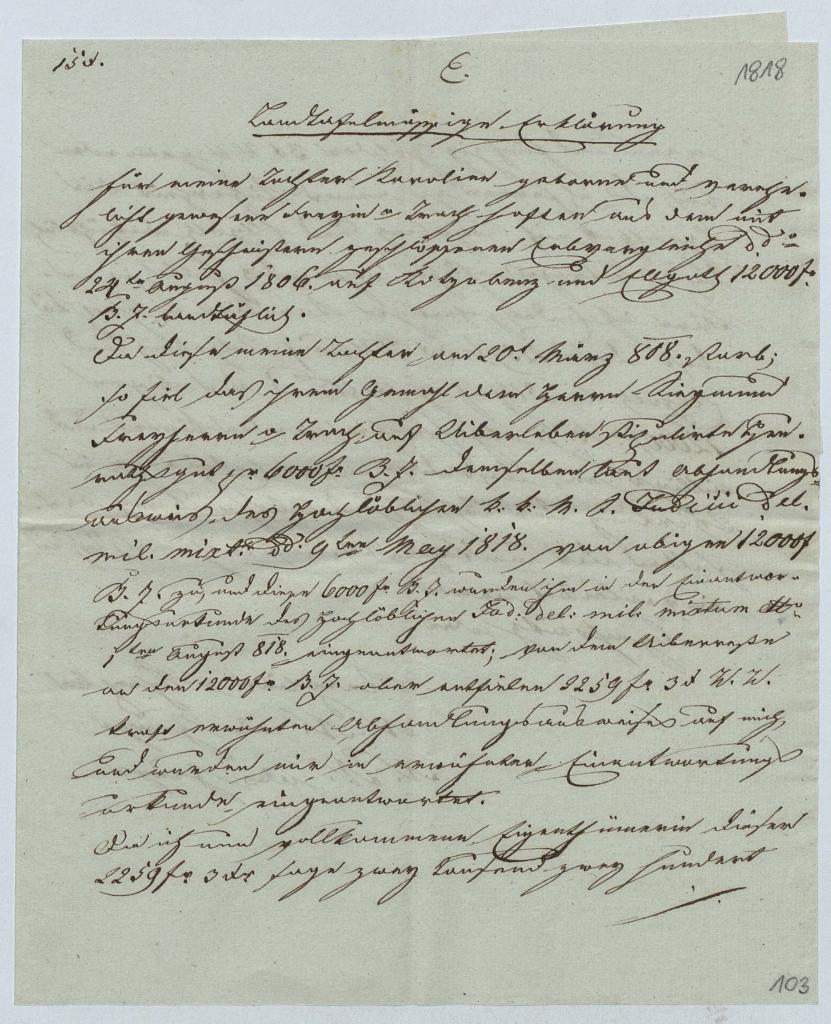 15 d.
E.
1818
Landtafelmässige Erklärung
für meine Tochter Karoline geborne und verehe-
licht gewesene Freyin v Trach haften aus dem mit
ihren Geschwistern geschlossenen Erbvergleiche dd°
24ten August 1806. auf Kotzobenz und Ellgoth 12000 fr
B. Z. landtäflich.
Da diese meine Tochter am 20t März 808. starb;
so fiel das ihrem Gemahl dem Herrn Siegmund
Freyherrn v Trach auf Uiberleben stipulirte Heu-
rathsgut pr 6000 fr B. Z. demselben laut Abhandlungs-
ausweis des Hochlöblichen k. k. M. S. Judicii Del.
mil. mixt. dd. 9ten May 1818. von obigen 12000 f
B. Z. zu, und diese 6000 fr B. Z. wurden ihm in der Einantwor-
tungsurkunde des Hochlöblichen Jud: del: mil: mixtum dto
1ten August 818. eingeantwortet; von dem Uiberreste
an den 12000 fr B. Z. aber entfielen 2259 fr 3 d W. W.
kraft erwähnten Abhandlungsausweises auf mich,
und wurden mir in erwähnter Einantwortungs
urkunde eingeantwortet.
Da ich nun vollkommene Eigenthümerin dieser
2259 fr 3 dr sage zwey Tausend zwey hundert
103